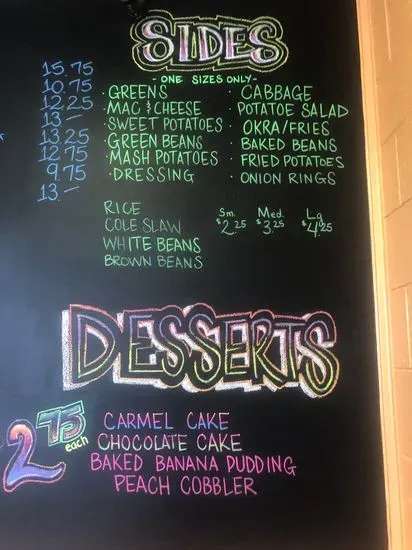 SIDES
- ONE SIZES ONLY -
15.75
10.75
12.25
13 -
13.25
12.75
9.75
13. -
· GREENS
· MAC & CHEESE
· SWEET POTATOES
· GREEN BEANS
· MASH POTATOES
· DRESSING
· CABBAGE
· POTATOE SALAD
· OKRA/FRIES
· BAKED BEANS
· FRIED POTATOES
· ONION RINGS
RICE
COLE SLAW
WHITE BEANS
BROWN BEANS
Sm. Med. Lg
$2.25 $3.25 $4.25
DESSERTS
2 75 each
CARMEL CAKE
CHOCOLATE CAKE
BAKED BANANA PUDDING
PEACH COBBLER